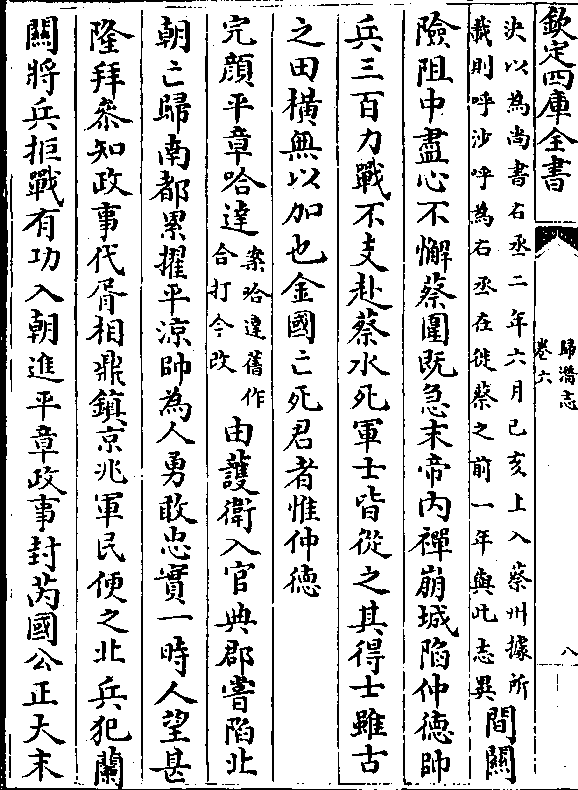 欽定四庫全書
歸潛志
卷六
八
決以為尚書右丞二年六月己亥上入蔡州據所
載則呼沙呼為右丞在徙蔡之前一年與此志異
間關
險阻中盡心不懈蔡圍既急末帝內禪崩城陷仲德帥
兵三百力戰不支赴蔡水死軍士皆從之其得士雖古
之田橫無以加也金國亡死君者惟仲德
完顏平章哈達
案哈達舊作
合打今改
由護衛入官典郡嘗陷北
朝亡歸南都累擢平涼帥為人勇敢忠實一時人望甚
隆拜叅知政事代胥相鼎鎮京兆軍民便之北兵犯蘭
關將兵拒戰有功入朝進平章政事封芮國公正大末